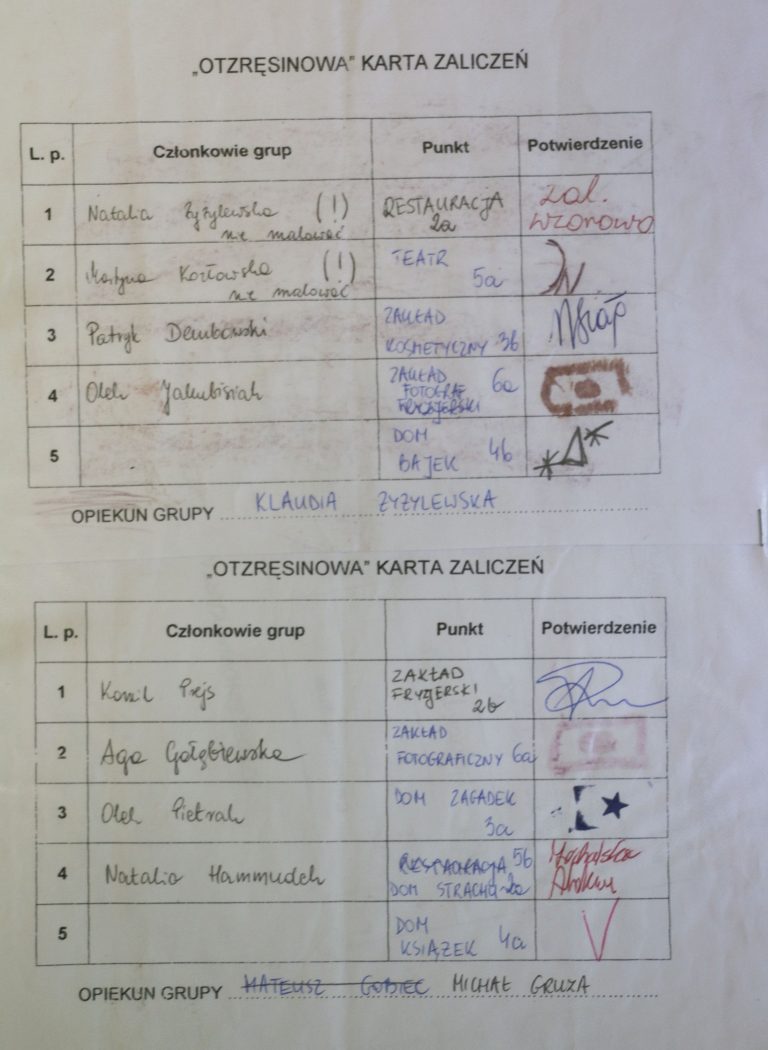 „OTZRĘSINOWA" KARTA ZALICZEŃ
L. p. Członkowie grup Punkt Potwierdzenie
1 Natalia Zyzylewska (!) nie malować RESTAURACJA 2a zal. wzorowo
2 Martyna Kozłowska (!) nie malować TEATR 5a
3 Patryk Dembowski ZAKŁAD KOSMETYCZNY 3b
4 Olek Jakubisiak ZAKŁAD FOTOGRAF 6a
5 DOM BAJEK 4b
OPIEKUN GRUPY KLAUDIA ZYZYLEWSKA
„OTZRĘSINOWA" KARTA ZALICZEŃ
L. p. Członkowie grup Punkt Potwierdzenie
1 Kamil Prejs ZAKŁAD FRYZJERSKI 2b
2 Aga Gołębiewska ZAKŁAD FOTOGRAFICZNY 6a
3 Olek Pietrak DOM ZAGADEK 3a
4 Natalia Hammudeh RESTAURACJA 5b DOM STRACHU
5 DOM KSIĄZEK 4a
OPIEKUN GRUPY MATEUSZ GOBIEC MICHAŁ GRUZA